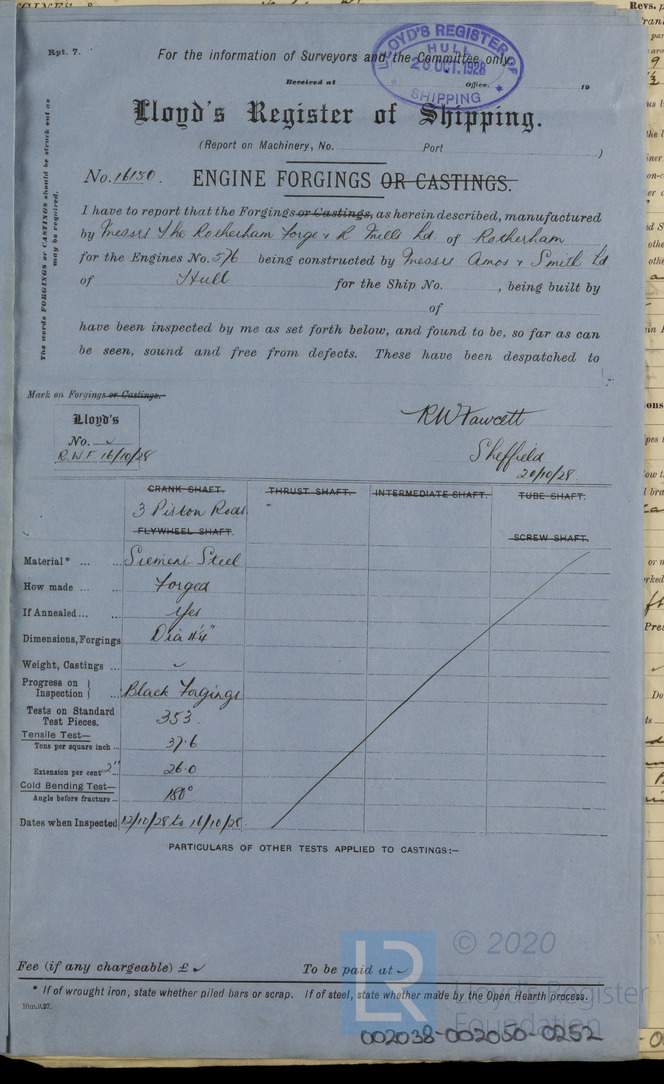 Rpt. 7.
For the information of Surveyors and the Committee only.
LLOYD'S REGISTER OF
HULL
26 OCT. 1928
SHIPPING
Received at
Office,
19
Lloyd's Register of Shipping.
(Report on Machinery, No. Port )
No. 16130. ENGINE FORGINGS OR CASTINGS.
The words FORGINGS or CASTINGS should be struck out as
may be required.
I have to report that the Forgings or Castings, as herein described, manufactured
by Messrs The Rotherham Forge & R Mills Ld of Rotherham
for the Engines No. 576 being constructed by Messrs Amos & Smith Ld
of Hull for the Ship No. , being built by
of
have been inspected by me as set forth below, and found to be, so far as can
be seen, sound and free from defects. These have been despatched to
Mark on Forgings or Castings.
Lloyd's
No.
R.W.F. 16/10/28
RW Fawcett
Sheffield
20/10/28.
CRANK SHAFT. THRUST SHAFT. INTERMEDIATE SHAFT. TUBE SHAFT.
3 Piston Rods
FLYWHEEL SHAFT. SCREW SHAFT.
Material* ... ... Siemens Steel
How made ... ... Forged
If Annealed ... ... Yes
Dimensions, Forgings Dia
Weight, Castings ...
Progress on Inspection } ... Black Forgings
Tests on Standard Test Pieces. 353.
Tensile Test—
Tons per square inch ... 37.6
Extension per cent 2" 26.0
Cold Bending Test—
Angle before fracture ... 180°
Dates when Inspected 12/10/28 to 16/10/28
PARTICULARS OF OTHER TESTS APPLIED TO CASTINGS:—
Fee (if any chargeable) £ To be paid at
* If of wrought iron, state whether piled bars or scrap. If of steel, state whether made by the Open Hearth process.
10m.9.27.
LR
© 2020
Lloyd's Register
Foundation
002038-002050-0252